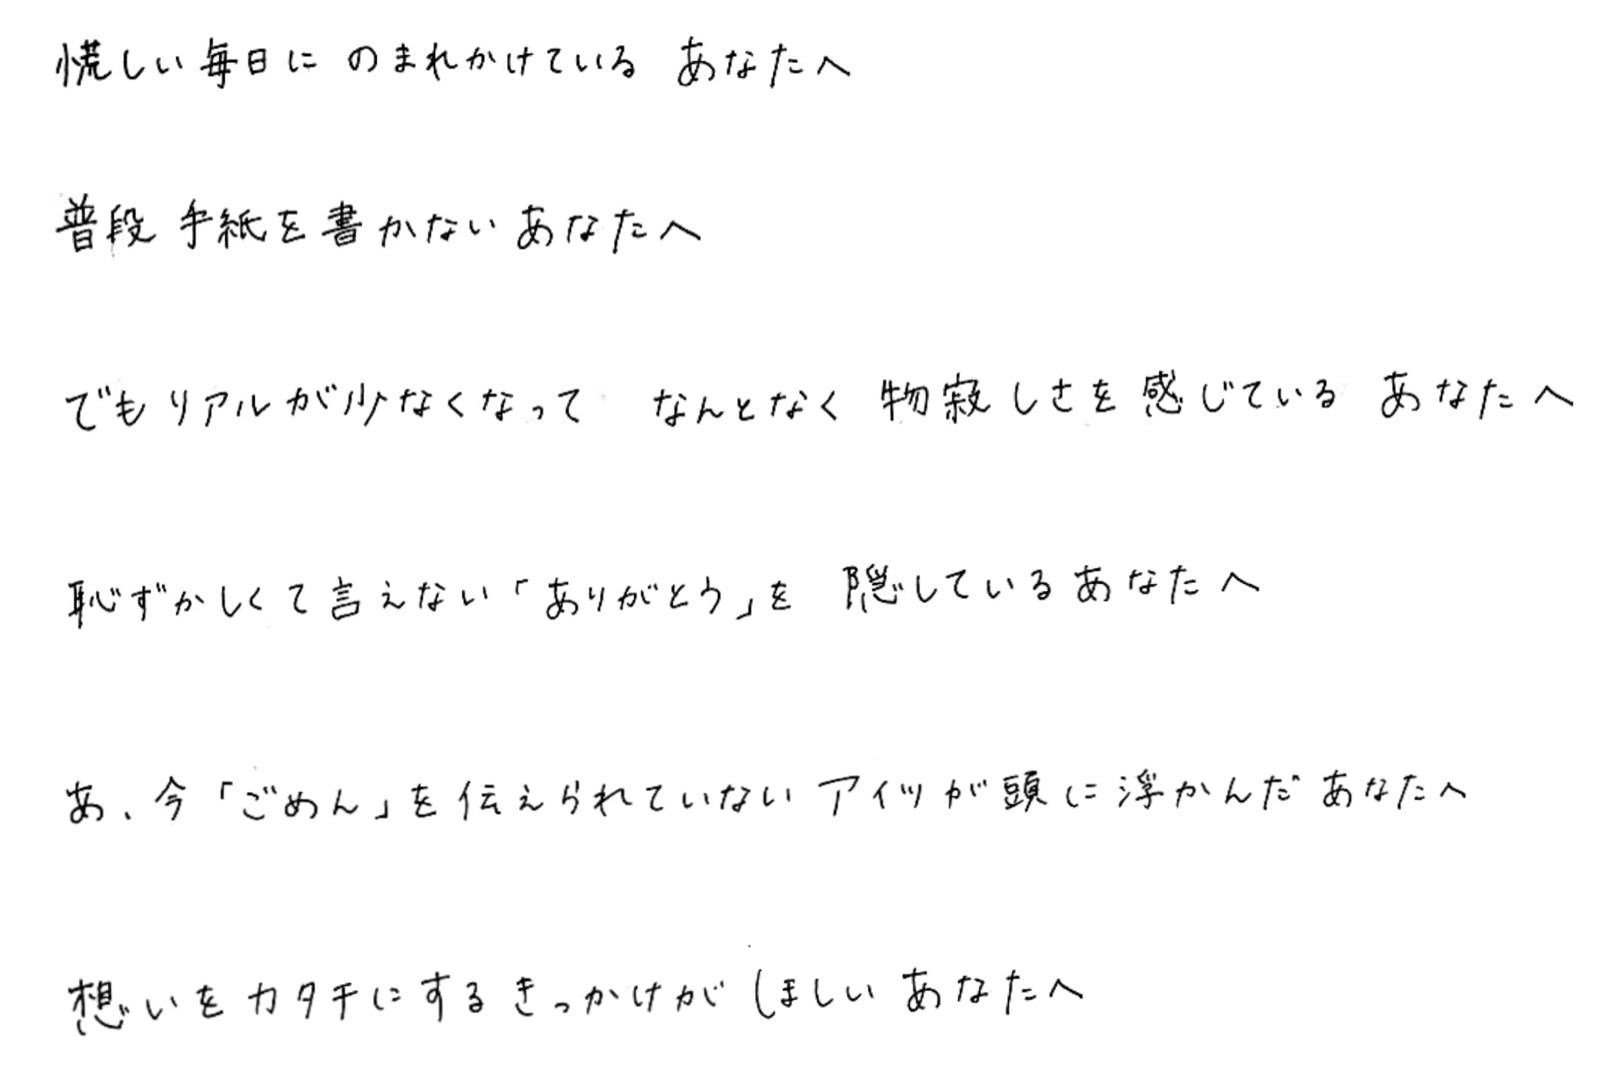 慌しい毎日に のまれかけている あなたへ
普段 手紙を書かない あなたへ
でもリアルが少なくなって なんとなく 物寂しさを感じている あなたへ
恥ずかしくて言えない「ありがとう」を 隠しているあなたへ
あ、今「ごめん」を伝えられていない アイツが頭に浮かんだ あなたへ
想いをカタチにする きっかけが ほしい あなたへ